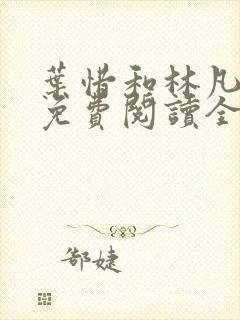 葉惜和林凡
免費閱讀全
郜婕